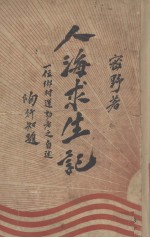 密野著
人海求生記
一位鄉村運動者之自述
陶行知題